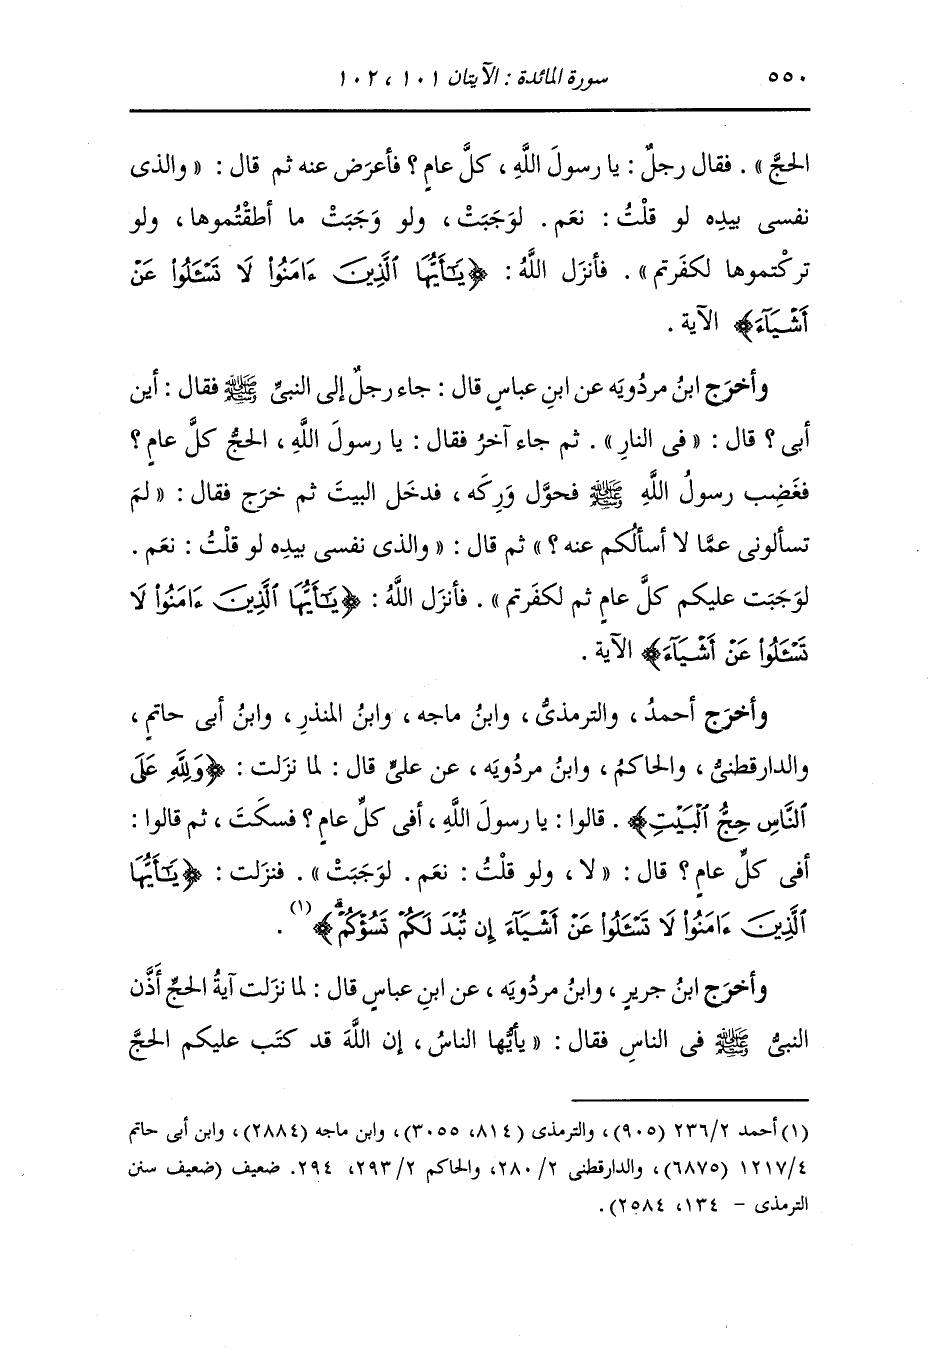 ٥٥٠ سورة المائدة : الآيتان ١٠١ ، ١٠٢
الحجَّ » . فقال رجلٌ : يا رسولَ اللَّهِ ، كلَّ عامٍ ؟ فأعرَض عنه ثم قال : « والذى
نفسى بيدِه لو قلْتُ : نعَم . لوَجَبَتْ ، ولو وَجَبَتْ ما أطقْتُموها ، ولو
تركْتموها لكفَرتم » . فأنزَل اللَّهُ : ﴿ يَٰٓأَيُّهَا ٱلَّذِينَ ءَامَنُوا۟ لَا تَسْـَٔلُوا۟ عَنْ
أَشْيَآءَ ﴾ الآية .
وأخرَج ابنُ مردُويَه عن ابنِ عباسٍ قال : جاء رجلٌ إلى النبىِّ ﷺ فقال : أين
أبى ؟ قال : « فى النارِ » . ثم جاء آخرُ فقال : يا رسولَ اللَّهِ ، الحجُّ كلَّ عامٍ ؟
فغَضِب رسولُ اللَّهِ ﷺ فحوَّل وَرِكَه ، فدخَل البيتَ ثم خرَج فقال : « لمَ
تسألونى عمَّا لا أسألُكم عنه ؟ » ثم قال : « والذى نفسى بيدِه لو قلْتُ : نعَم .
لوَجَبَت عليكم كلَّ عامٍ ثم لكفَرتم » . فأنزَل اللَّهُ : ﴿ يَٰٓأَيُّهَا ٱلَّذِينَ ءَامَنُوا۟ لَا
تَسْـَٔلُوا۟ عَنْ أَشْيَآءَ ﴾ الآية .
وأخرَج أحمدُ ، والترمذىُّ ، وابنُ ماجه ، وابنُ المنذرِ ، وابنُ أبى حاتمٍ ،
والدارقطنىُّ ، والحاكمُ ، وابنُ مردُويَه ، عن علىٍّ قال : لما نزَلت : ﴿ وَلِلَّهِ عَلَى
ٱلنَّاسِ حِجُّ ٱلْبَيْتِ ﴾ . قالوا : يا رسولَ اللَّهِ ، أفى كلِّ عامٍ ؟ فسكَتَ ، ثم قالوا :
أفى كلِّ عامٍ ؟ قال : « لا ، ولو قلْتُ : نعَم . لوَجَبَتْ » . فنزَلت : ﴿ يَٰٓأَيُّهَا
ٱلَّذِينَ ءَامَنُوا۟ لَا تَسْـَٔلُوا۟ عَنْ أَشْيَآءَ إِن تُبْدَ لَكُمْ تَسُؤْكُمْ ﴾ (١) .
وأخرَج ابنُ جريرٍ ، وابنُ مردُويَه ، عن ابنِ عباسٍ قال : لما نزَلت آيةُ الحجِّ أَذَّن
النبىُّ ﷺ فى الناسِ فقال : « يأيُّها الناسُ ، إن اللَّهَ قد كتَب عليكم الحجَّ
(١) أحمد ٢٣٦/٢ (٩٠٥) ، والترمذى (٨١٤، ٣٠٥٥) ، وابن ماجه (٢٨٨٤) ، وابن أبى حاتم
١٢١٧/٤ (٦٨٧٥) ، والدارقطنى ٢٨٠/٢، والحاكم ٢٩٣/٢، ٢٩٤. ضعيف (ضعيف سنن
الترمذى - ١٣٤، ٢٥٨٤) .